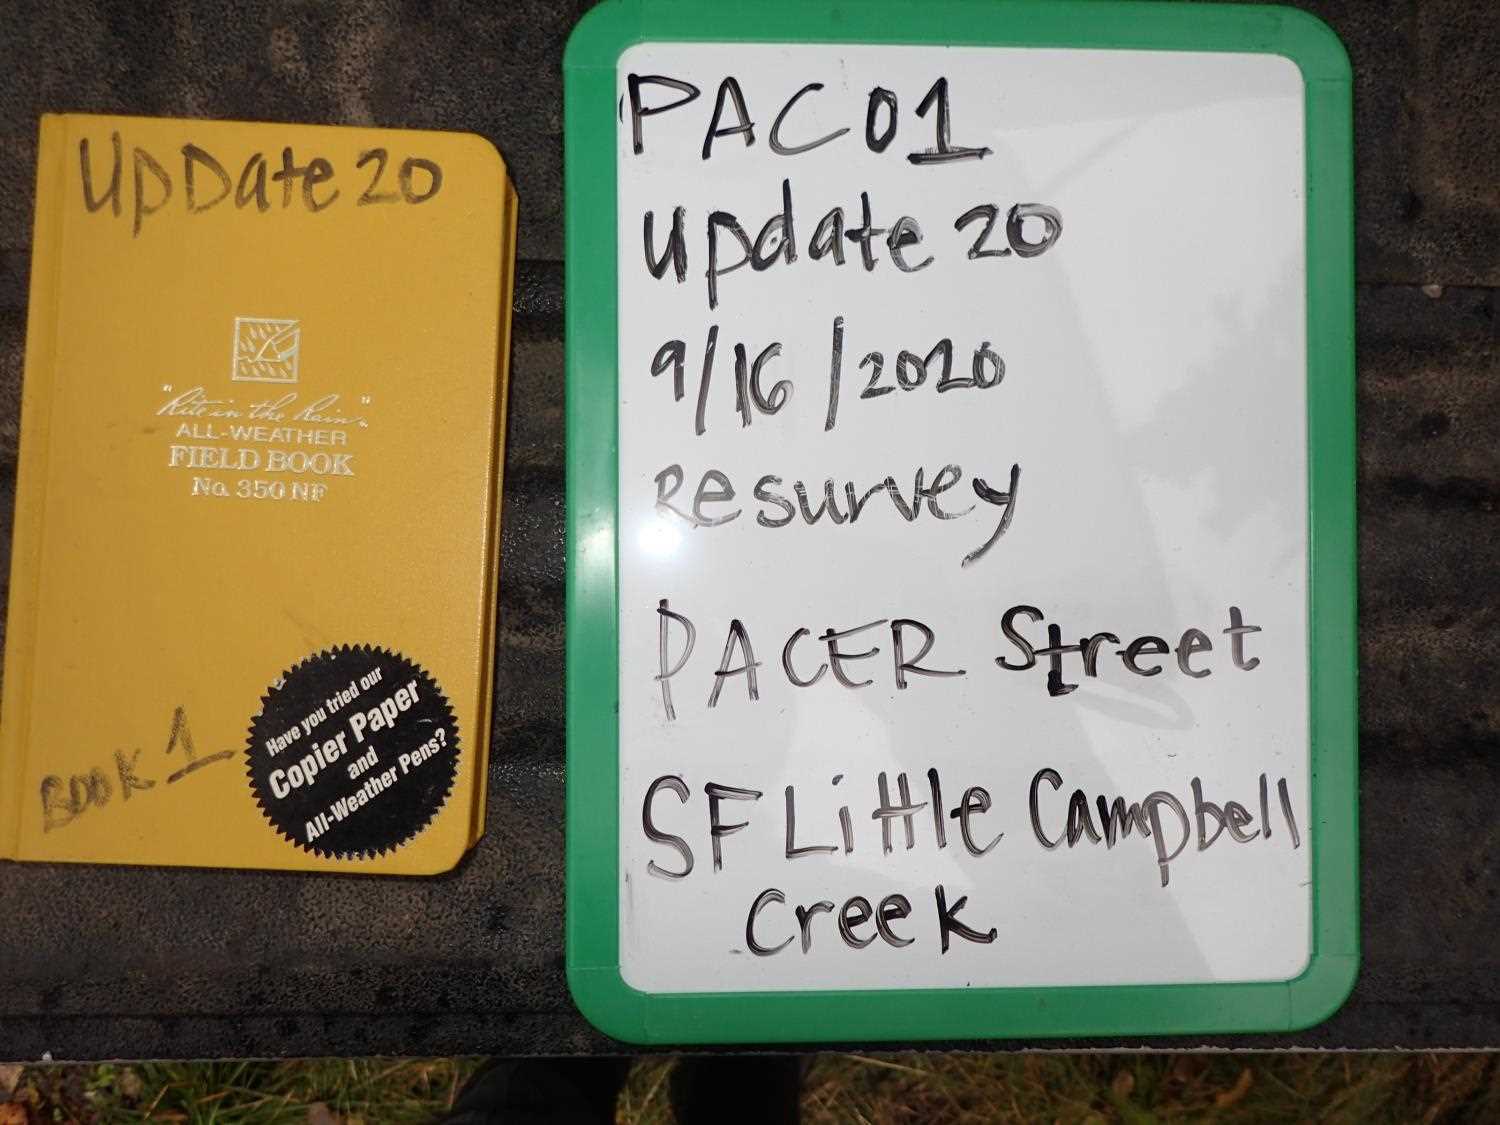 UpDate 20
"Rite in the Rain"
ALL-WEATHER
FIELD BOOK
No. 350 NF
BOOK 1
Have you tried our
Copier Paper
and
All-Weather Pens?
PAC01
update 20
9/16/2020
Resurvey
PACER Street
SF Little Campbell
Creek